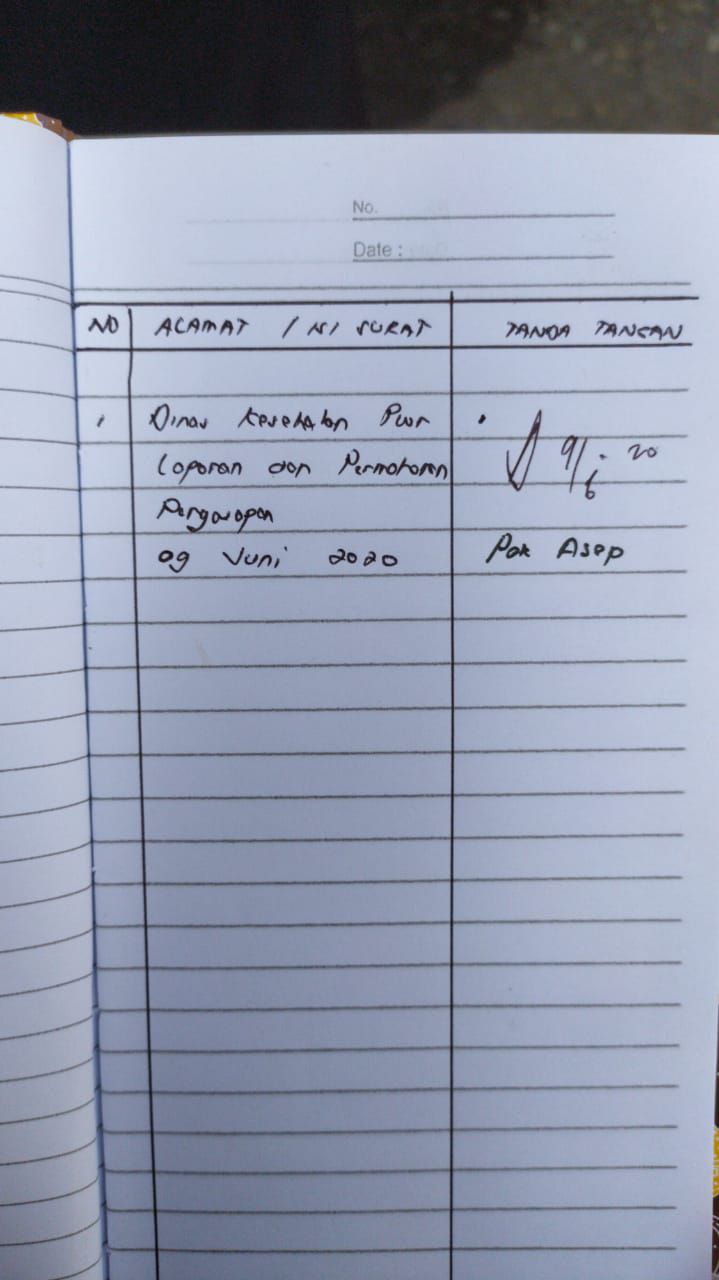 No.
Date :
NO ALAMAT / ISI SURAT TANDA TANGAN
1 Dinas Kesehatan Pwr
Laporan dan Permohonan
Pengasapan
09 Juni 2020
9/6 - 20
Pak Asep